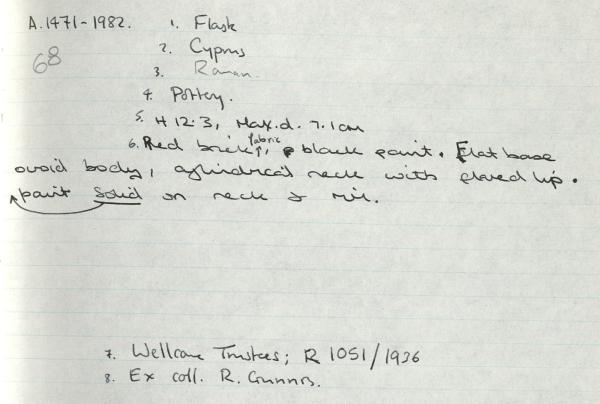 A.1471-1982. 1. Flask
68
2. Cyprus
3. Roman.
4. Pottery.
5. H 12.3, Max.d. 7.1cm
6. Red brick fabric, black paint. Flat base
ovoid body, cylindrical neck with flared lip.
paint Solid on neck & rim.
7. Wellcome Trustees; R 1051/1936
8. Ex coll. R. Gunnis.